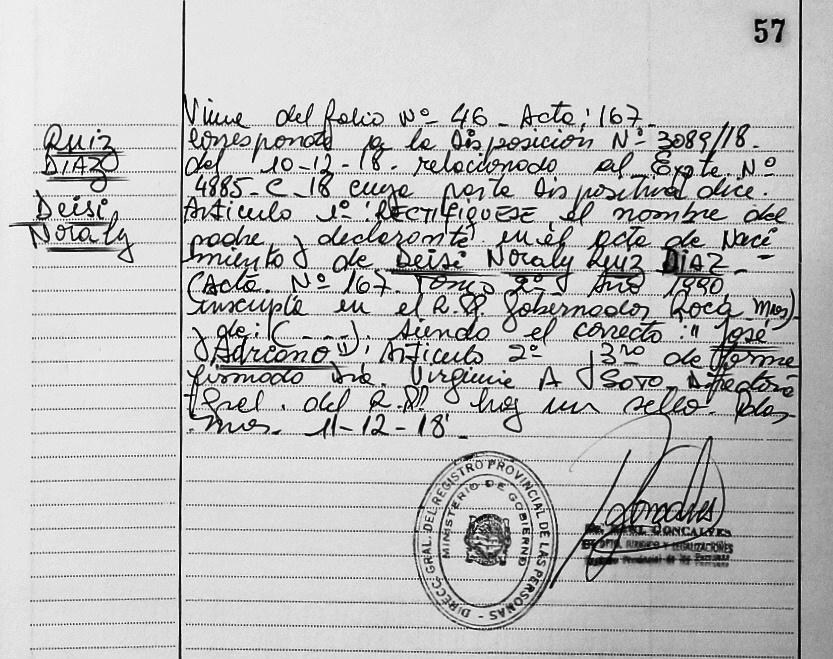 57
Ruiz
DIAZ
Deisi
Noraly
Viene del folio Nº 46 - Acta: 167.
Corresponde a la Disposición Nº 3089/18.
del 10-12-18. relacionado al Expte Nº
4885-C-18 cuya parte Dispositiva dice.
Articulo 1º: RECTIFIQUESE el nombre del
padre y declarante en el acta de Naci
miento de Deisi Noraly Ruiz DIAZ -
(Acta. Nº 167. Tomo 2º Año 1990
inscripta en el R.P. Gobernador Roca Mnes)
de: (---). siendo el correcto: "José
Adriano": Articulo 2º y 3ro de forma
firmado Dra. Virginia A Soto Directora
Gral. del R.P. hay un sello. Pdas
Mnes. 11-12-18.
DIRECC. GRAL. DEL REGISTRO PROVINCIAL DE LAS PERSONAS
MINISTERIO DE GOBIERNO
RAUL GONCALVES
JURIDICO Y LEGALIZACIONES
Provincial de las Personas